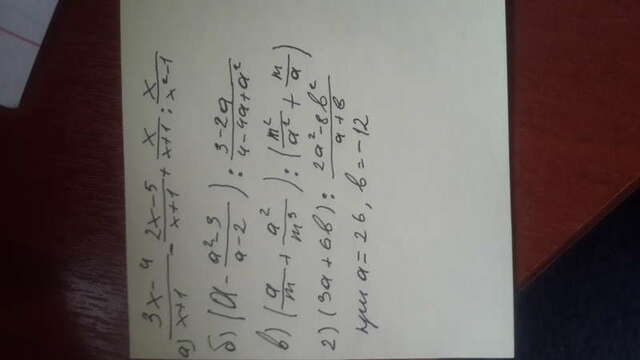 а) (3x-4)/(x+1) - (2x-5)/(x+1) + x/(x+1) : x/(x²-1)
б) (a - (a²-3)/(a-2)) : (3-2a)/(4-4a+a²)
в) (a/m + a²/m³) : (m²/a² + m/a)
г) (3a+6b) : (2a²-8b²)/(a+b)
при a=26, b=-12